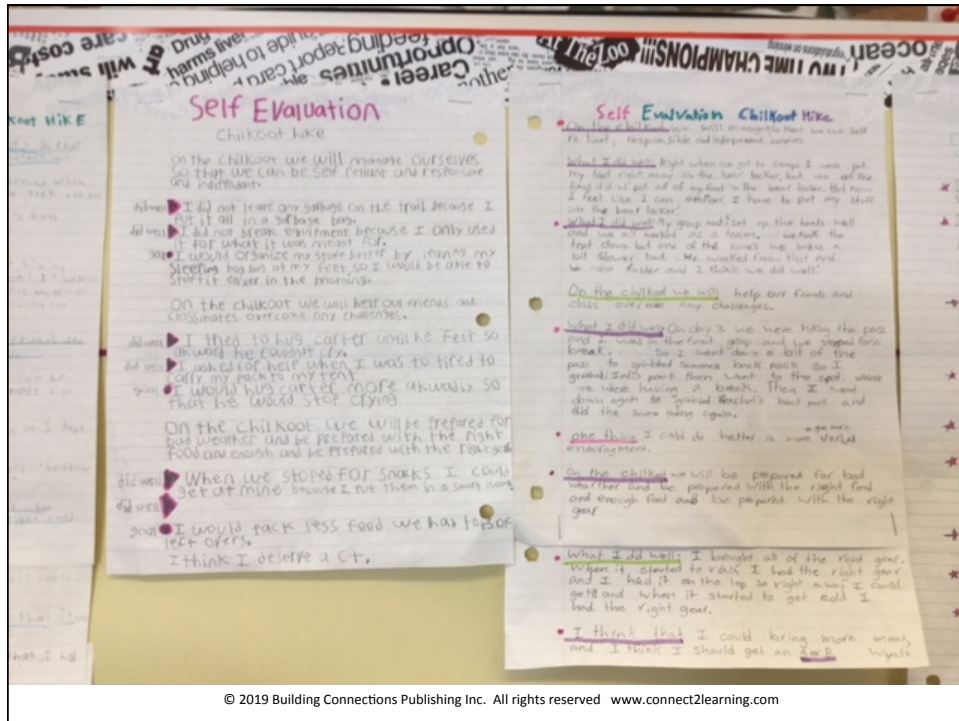 Self Evaluation
Chilkoot hike
on the chilkoot we will manage ourselves
so that we can be self reliant and responsible
and
did well I did not leave any garbage on the trail because I
put it all in a garbage bag.
did well I did not break equipment because I only used
it for what it was meant for.
goal I would organize my stuff better by leaving my
sleeping bag at my feet, so I would be able to
stuff it easier in the morning.
On the chilkoot we will help our friends and
classmates overcome any challenges.
did well I tried to hug carter until he felt so
akward he couldn't cry.
did well I asked for help when I was to tired to
carry my pack to my tent
goal I would hug carter more akwardly so
that he would stop crying
On the chilkoot we will be prepared for
bad weather and be prepared with the right
food and enough and be prepared with the right gear
did well When we stoped for snacks I could
get at mine because I put them in a
did well
goal I would pack less food we had lots of
left overs.
I think I deserve a C+.
Self Evaluation Chilkoot Hike
On the chilkoot we will so that we can self
reliant, responsible and independent
What I did well: Right when we got to camp I would put
my food right away into the bear locker, but one of the
I did put all of my food in the bear locker. But now
I feel like I can I have to put my stuff
into the bear locker!
What I did well: My group and I set up the tents well
and we all worked as a team. We took the
tent down but one of the we were a
bit slower but. We worked from that and
we now faster and I think we did well!
On the chilkoot we will help our friends and
class overcome any challenges.
What I did well: On day 3 we were hiking the pass
and I was in the first group and we stopped for a
break. So I went down a bit of the
pass to grabbed someones back pack so I
grabbed pack then went to the spot, where
we were having a break. Then I went
down again to grabbed back pack and
did the same thing again.
one thing I could do better is give more verbal
encouragement.
On the chilkoot we will be prepared for bad
weather and be prepared with the right food
and enough food and be prepared with the right
gear
What I did well: I brought all of the right gear.
When it started to rain I had the right gear
and I had it on the top so right away I could
get it and when it started to get cold I
had the right gear.
I think that I could bring more meat,
and I think I should get an Wyatt
© 2019 Building Connections Publishing Inc. All rights reserved www.connect2learning.com